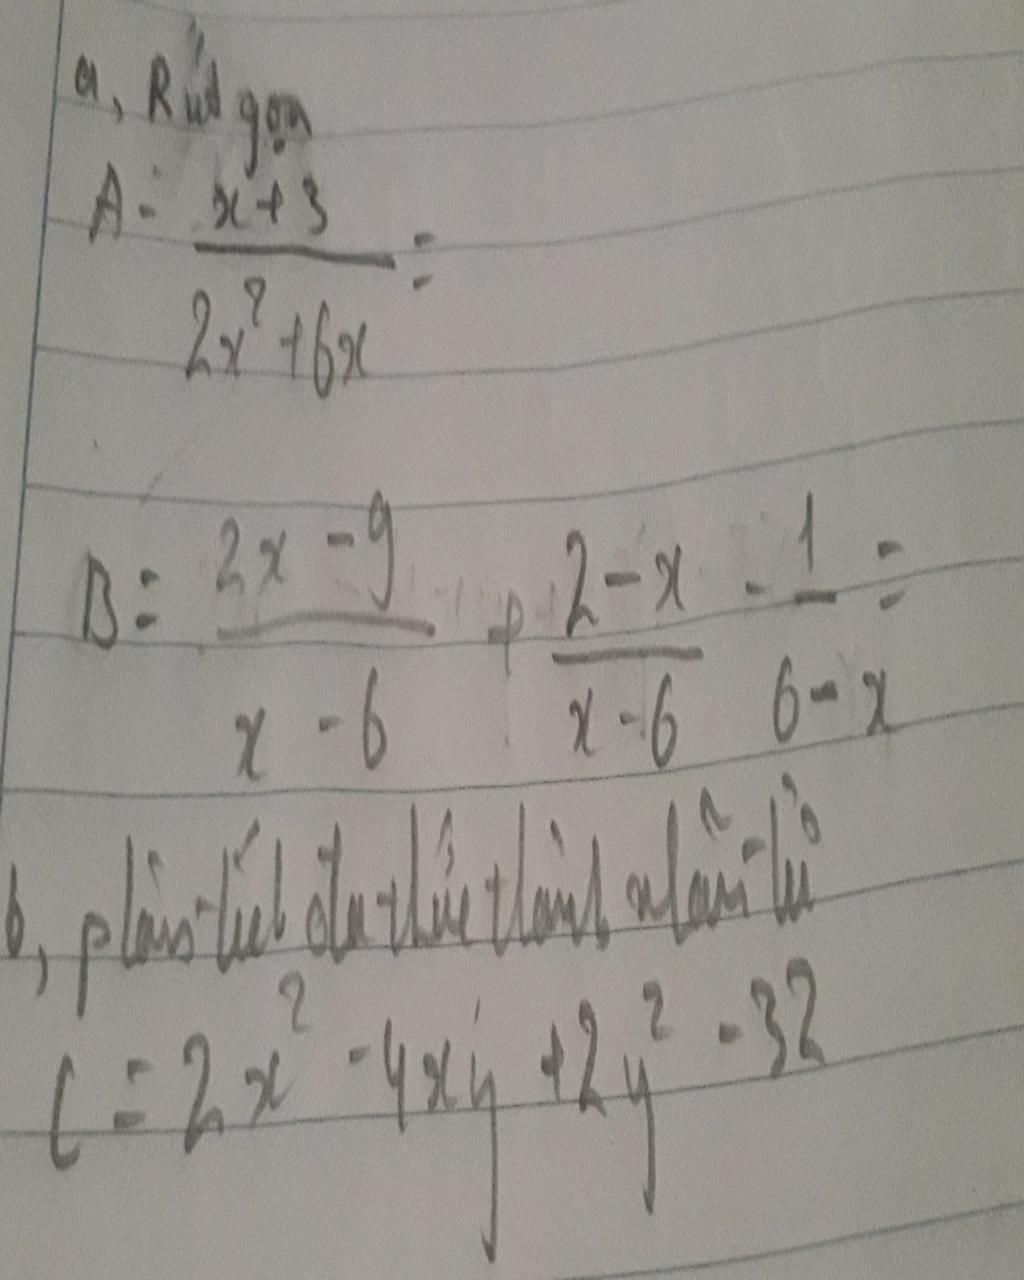 a, Rút gọn
A = x+3 / 2x² + 6x =
B = 2x - 9 / x - 6 + 2 - x / x - 6 - 1 / 6 - x =
b, phân tích đa thức thành nhân tử
C = 2x² - 4xy + 2y² - 32